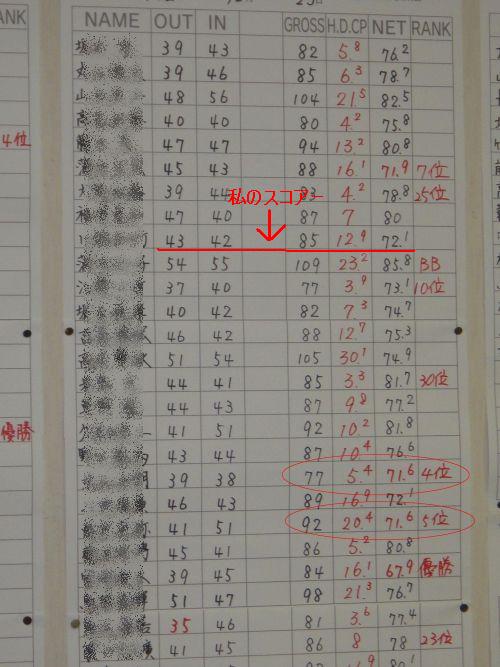 RANK NAME OUT IN GROSS H.D.CP NET RANK
39 43 82 5.8 76.2
39 46 85 6.3 78.7
48 56 104 21.5 82.5
40 40 80 4.2 75.8
4位 47 47 94 13.2 80.8
45 43 88 16.1 71.9 7位
39 44 83 4.2 78.8 25位
私のスコアー
47 40 87 7 80
43 42 85 12.9 72.1
54 55 109 23.2 85.8 BB
37 40 77 3.9 73.1 10位
40 42 82 7.3 74.7
46 42 88 12.7 75.3
51 54 105 30.1 74.9
44 41 85 3.3 81.7 30位
44 43 87 9.8 77.2
優勝 41 51 92 10.2 81.8
43 44 87 10.4 76.6
39 38 77 5.4 71.6 4位
46 43 89 16.9 72.1
41 51 92 20.4 71.6 5位
45 41 86 5.2 80.8
39 45 84 16.1 67.9 優勝
51 47 98 21.3 76.7
35 46 81 3.6 77.4
41 45 86 8 78 23位